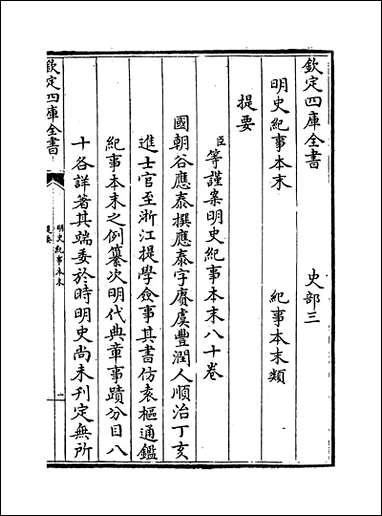 欽定四庫全書
史部三
明史紀事本末
紀事本末類
提要
臣等謹案明史紀事本末八十卷
國朝谷應泰撰應泰字賡虞豐潤人順治丁亥
進士官至浙江提學僉事其書仿袁樞通鑑
紀事本末之例纂次明代典章事蹟分目八
十各詳著其端委於時明史尚未刊定無所
欽定四庫全書
明史紀事本末
提要
一